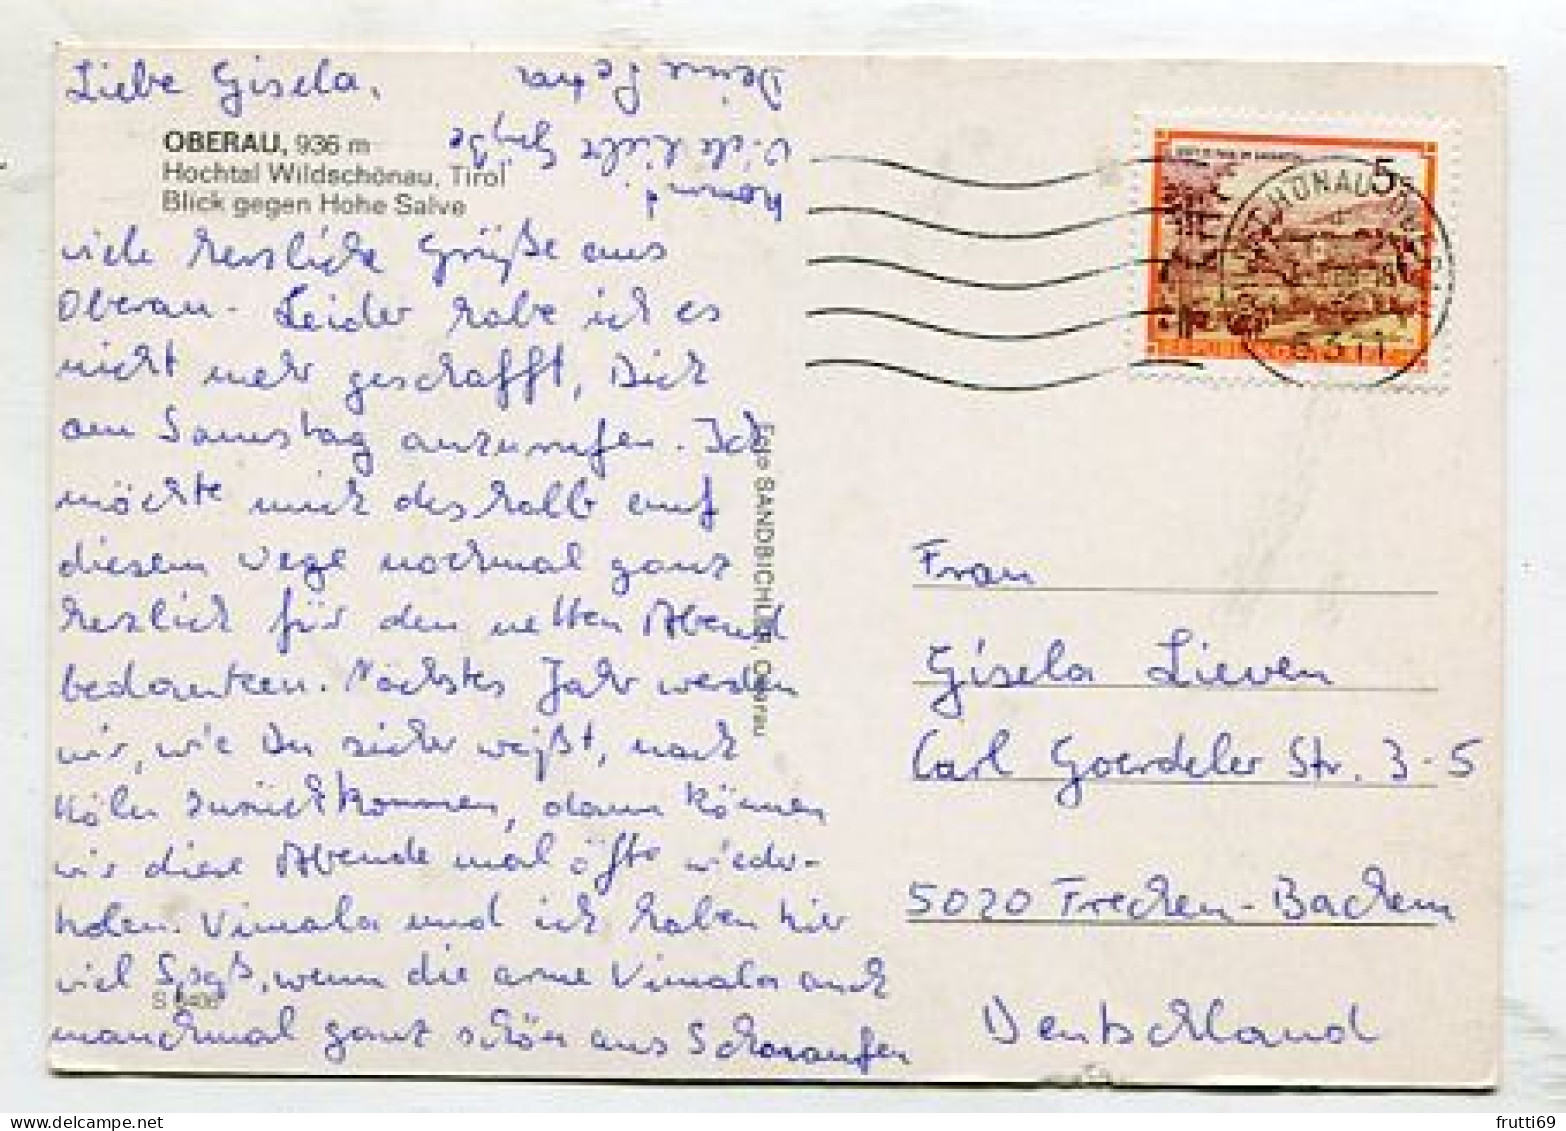 Liebe Gisela,
OBERAU, 936 m
Hochtal Wildschönau, Tirol
Blick gegen Hohe Salve
viele herzliche Grüße aus
Oberau. Leider habe ich es
nicht mehr geschafft, Dich
am Samstag anzurufen. Ich
möchte mich deshalb auf
diesem Wege nochmal ganz
herzlich für den netten Abend
bedanken. Nächstes Jahr werden
wir, wie Du sicher weißt, nach
Köln zurückkommen, dann können
wir diese Abende mal öfte wieder-
holen. Vimala und ich haben hir
viel Spaß, wenn die arme Vimala auch
manchmal ganz schön aus Schnaufen
kommt
Viele liebe
Deine
S
Foto SANDBICHLER, Oberau
5
6311
Frau
Gisela Lieven
Carl Goerdeler Str. 3-5
5020 Frechen-Bachem
Deutschland
frutti69